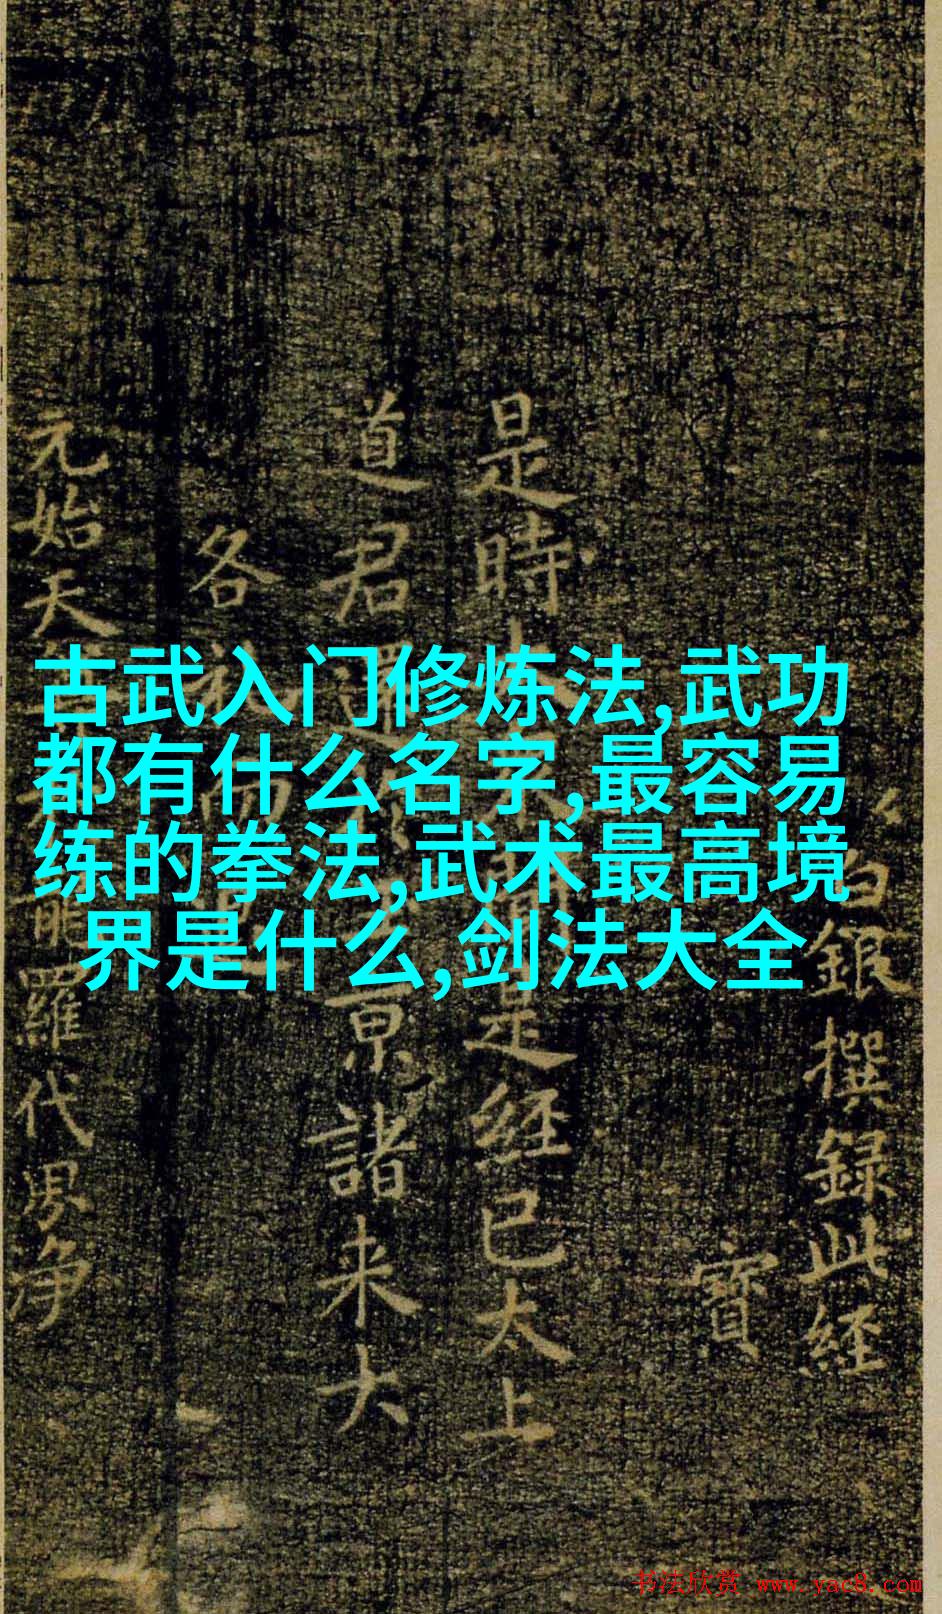 古武入门修炼法,武功
都有什么名字,最容易
练的拳法,武术最高境
界是什么,剑法大全
白銀撰錄此經
寶
是時
是經已太上
道君
京諸来大
各
元始天
羅代界净
书法欣赏 www.yac8.com